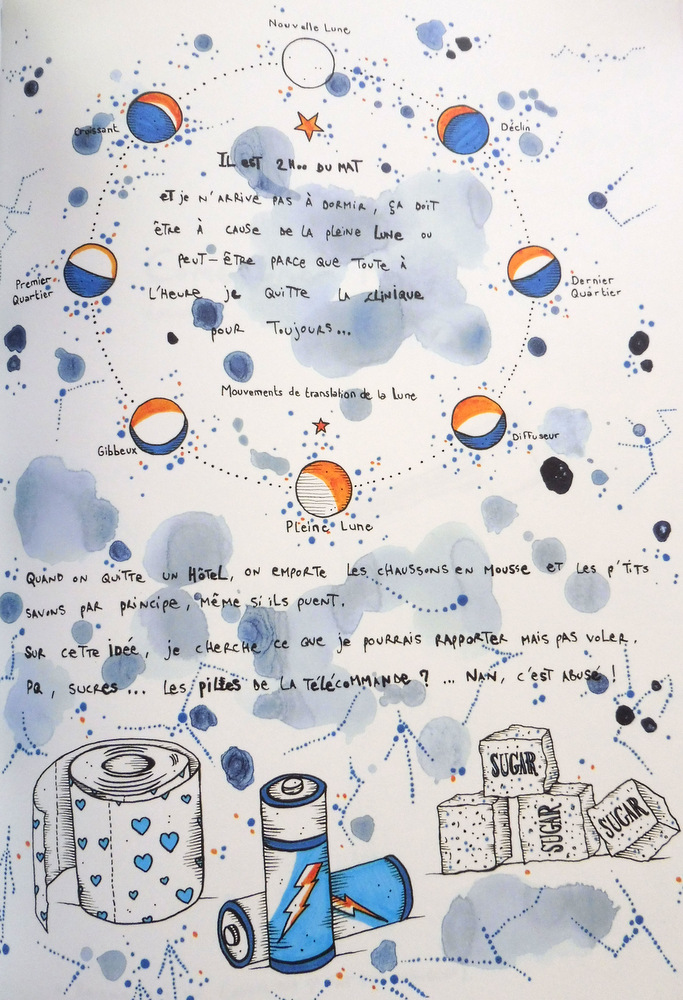 Nouvelle Lune
Croissant
Déclin
IL EST 2H00 DU MAT
ET je N'ARRIVE PAS À DORMIR, ÇA DOIT
ÊTRE À CAUSE DE LA pLEINE LUNE OU
PEUT-ÊTRE PARCE QUE TOUTE À
L'HEURE je QUITTE LA CLINIQUE
POUR TOUJOURS...
Premier
Quartier
Dernier
Quartier
Mouvements de translation de la Lune
Gibbeux
Diffuseur
Pleine Lune
QUAND ON QUITTE UN HÔTEL, ON EMPORTE LES CHAUSSONS EN MOUSSE ET LES P'TITS
SAVONS PAR PRINCIPE, MÊME SI ILS PUENT.
SUR CETTE IDÉE, je CHERCHE CE QUE je POURRAIS RAPPORTER MAIS PAS VOLER.
PQ, SUCRES... LES PILES DE LA TÉLÉCOMMANDE ? ... NAN, C'EST ABUSÉ !
SUGAR
SUGAR
SUGAR